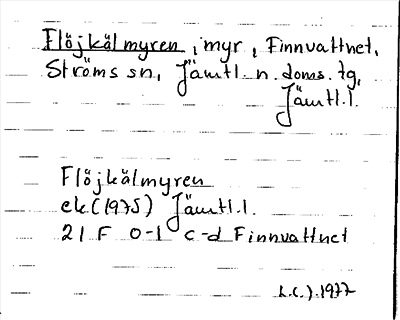 Flöjkälmyren, myr, Finnvattnet,
Ströms sn, Jämtl. n. doms. tg,
Jämtl.l.
Flöjkälmyren
ek.(1975) Jämtl.l.
21 F 0-1 c-d Finnvattnet
L.C.J. 1977